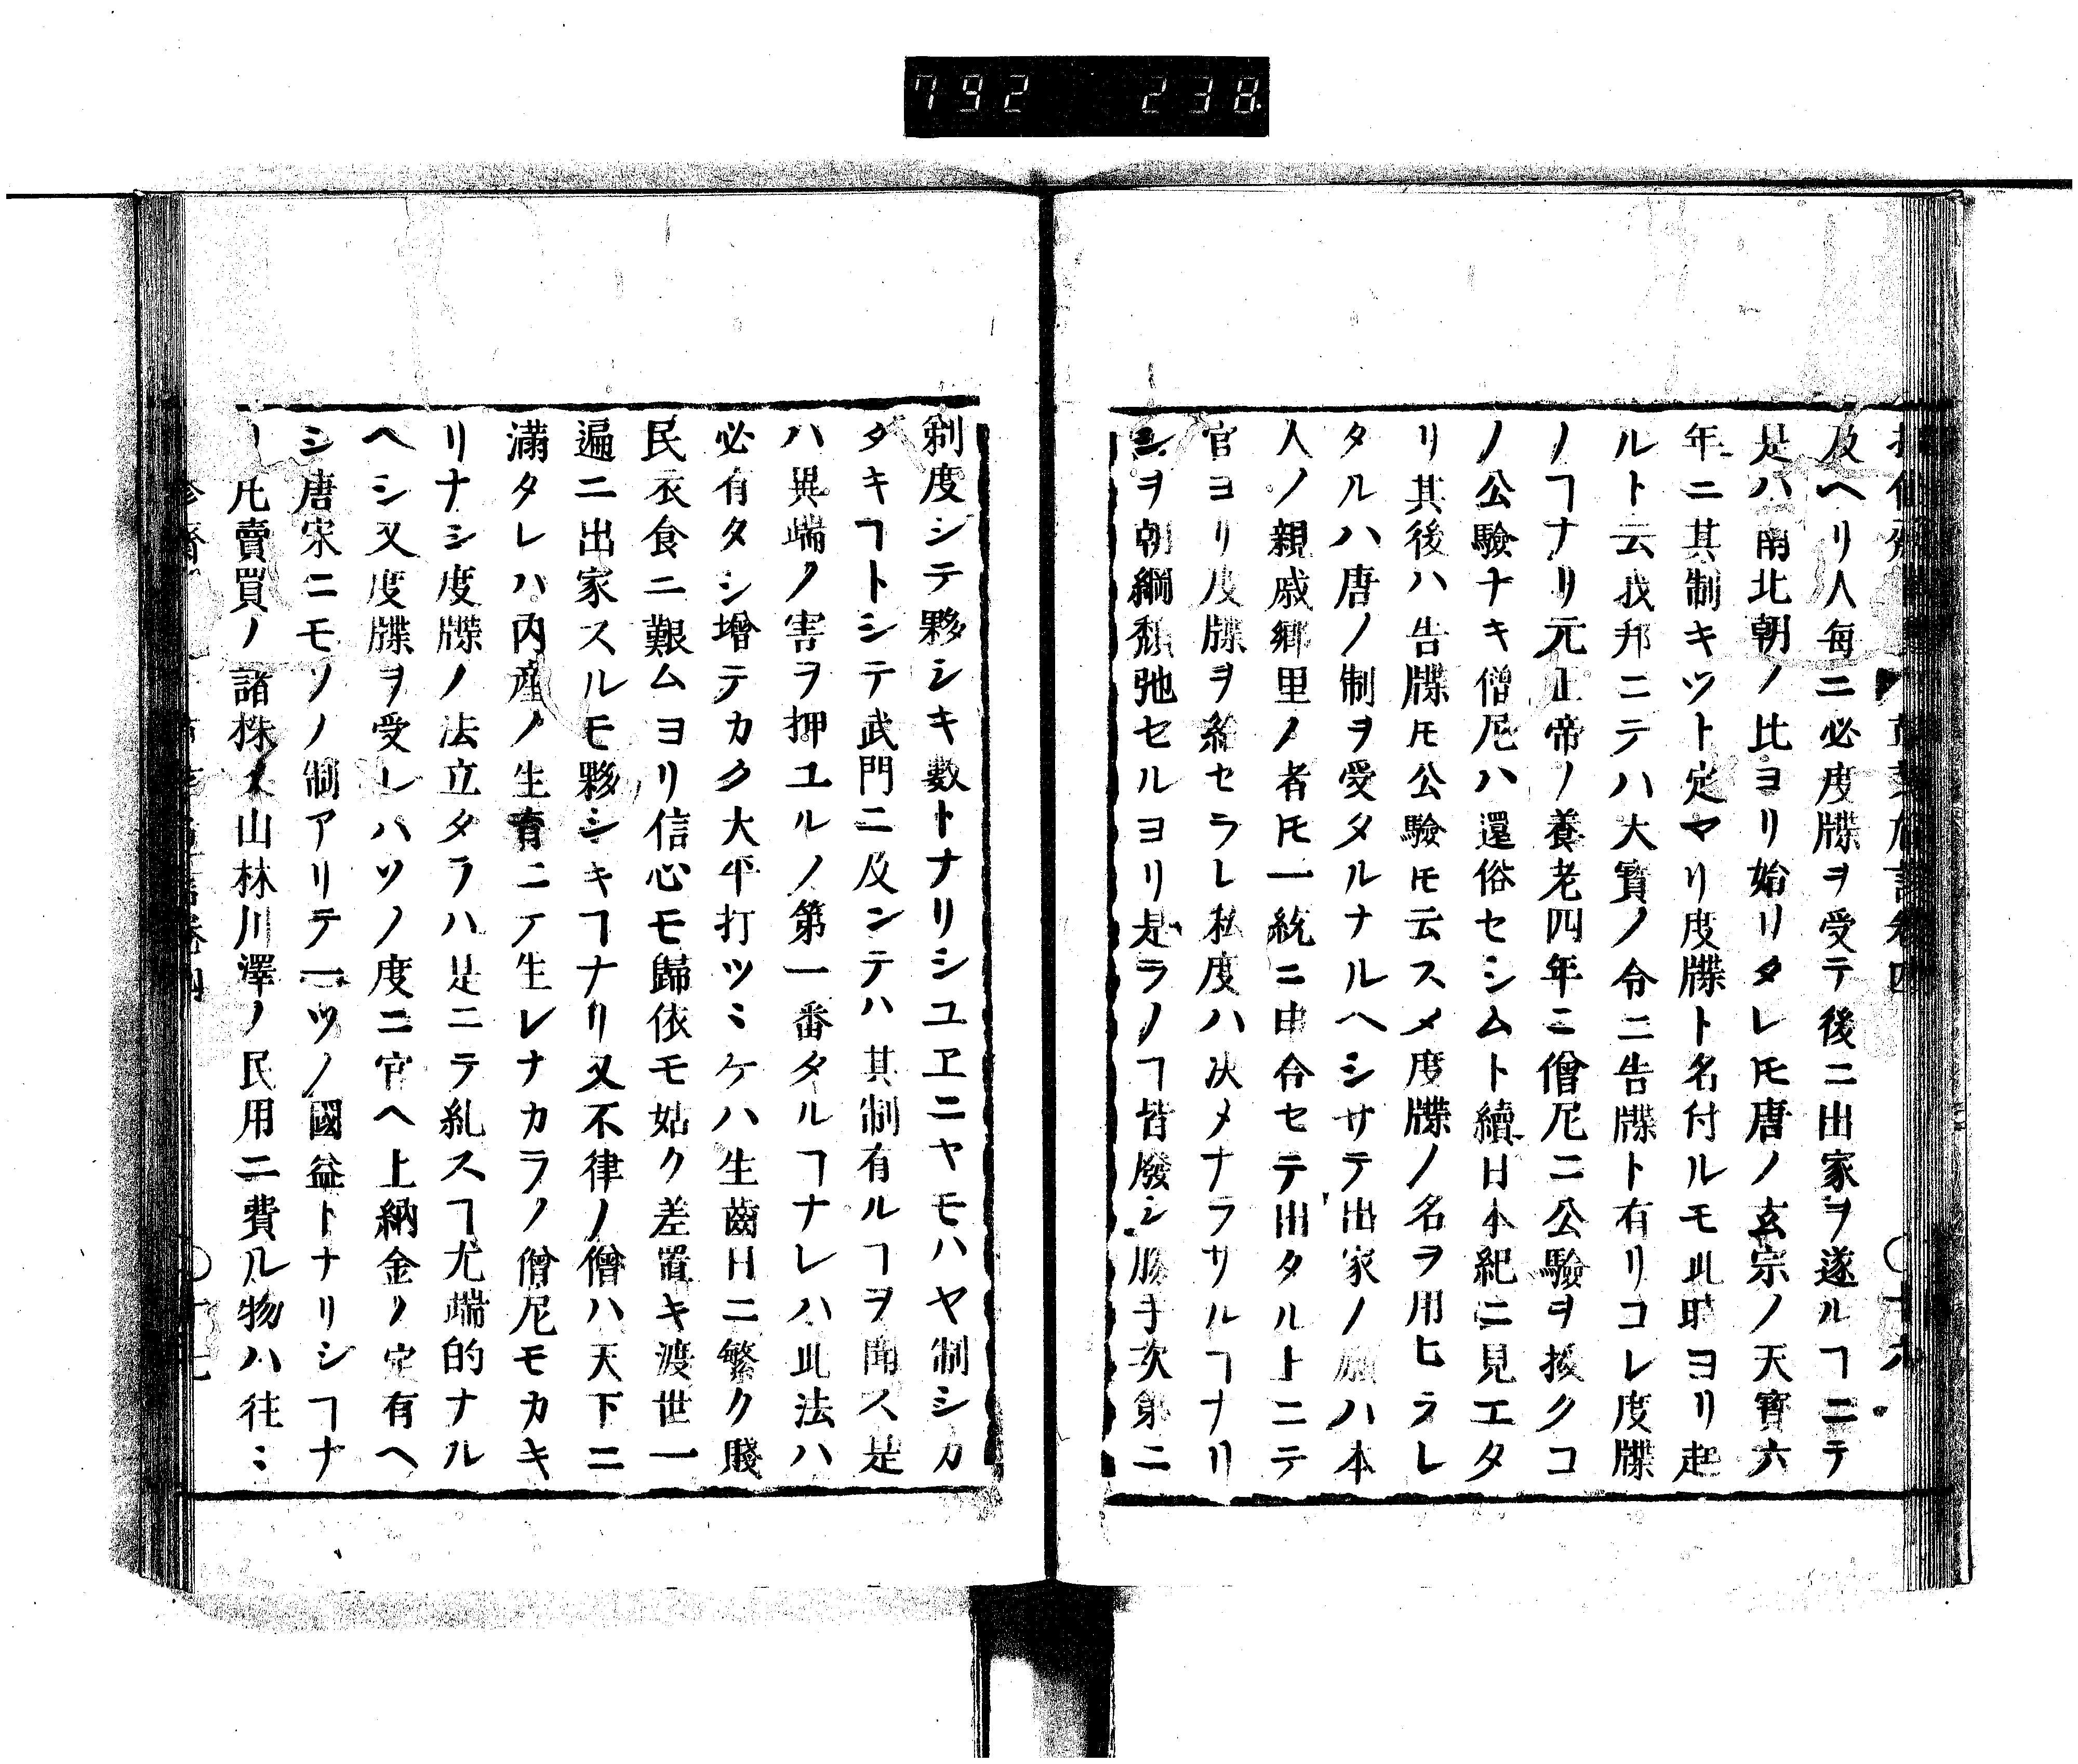 792 238
及ヘリ人毎ニ必度牒ヲ受テ後ニ出家ヲ遂ルヿニテ
是ハ南北朝ノ比ヨリ始リタレ𪜈唐ノ玄宗ノ天寳六
年ニ其制キツト定マリ度牒ト名付ルモ此時ヨリ起
ルト云我邦ニテハ大寳ノ令ニ告牒ト有リコレ度牒
ノヿナリ元正帝ノ養老四年ニ僧尼ニ公驗ヲ授クコ
ノ公驗ナキ僧尼ハ還俗セシムト續日本紀ニ見エタ
リ其後ハ告牒𪜈公驗𪜈云スメ度牒ノ名ヲ用ヒラレ
タルハ唐ノ制ヲ受タルナルヘシサテ出家ノ願ハ本
人ノ親戚郷里ノ者𪜈一統ニ申合セテ出タル上ニテ
官ヨリ度牒ヲ給セラレ私度ハ决メナラサルヿナリ
シヲ朝綱頽弛セルヨリ是ラノヿ皆廢シ勝手次第ニ
剃度シテ夥シキ數トナリシユヱニヤモハヤ制シカ
タキヿトシテ武門ニ及ンテハ其制有ルヿヲ聞ス是
ハ異端ノ害ヲ押ユルノ第一番タルヿナレハ此法ハ
必有タシ增テカク大平打ツミケハ生齒日ニ繁ク賤
民衣食ニ艱ムヨリ信心モ歸依モ姑ク差置キ渡世一
遍ニ出家スルモ夥シキヿナリ又不律ノ僧ハ天下ニ
滿タレハ内産ノ生育ニテ生レナカラノ僧尼モカキ
リナシ度牒ノ法立タラハ是ニテ糺スヿ尤端的ナル
ヘシ又度牒ヲ受レハソノ度ニ官ヘ上納金ノ定有ヘ
シ唐宋ニモソノ制アリテ一ツノ國益トナリシヿナ
凡賣買ノ諸株又山林川澤ノ民用ニ費ル物ハ往ミ